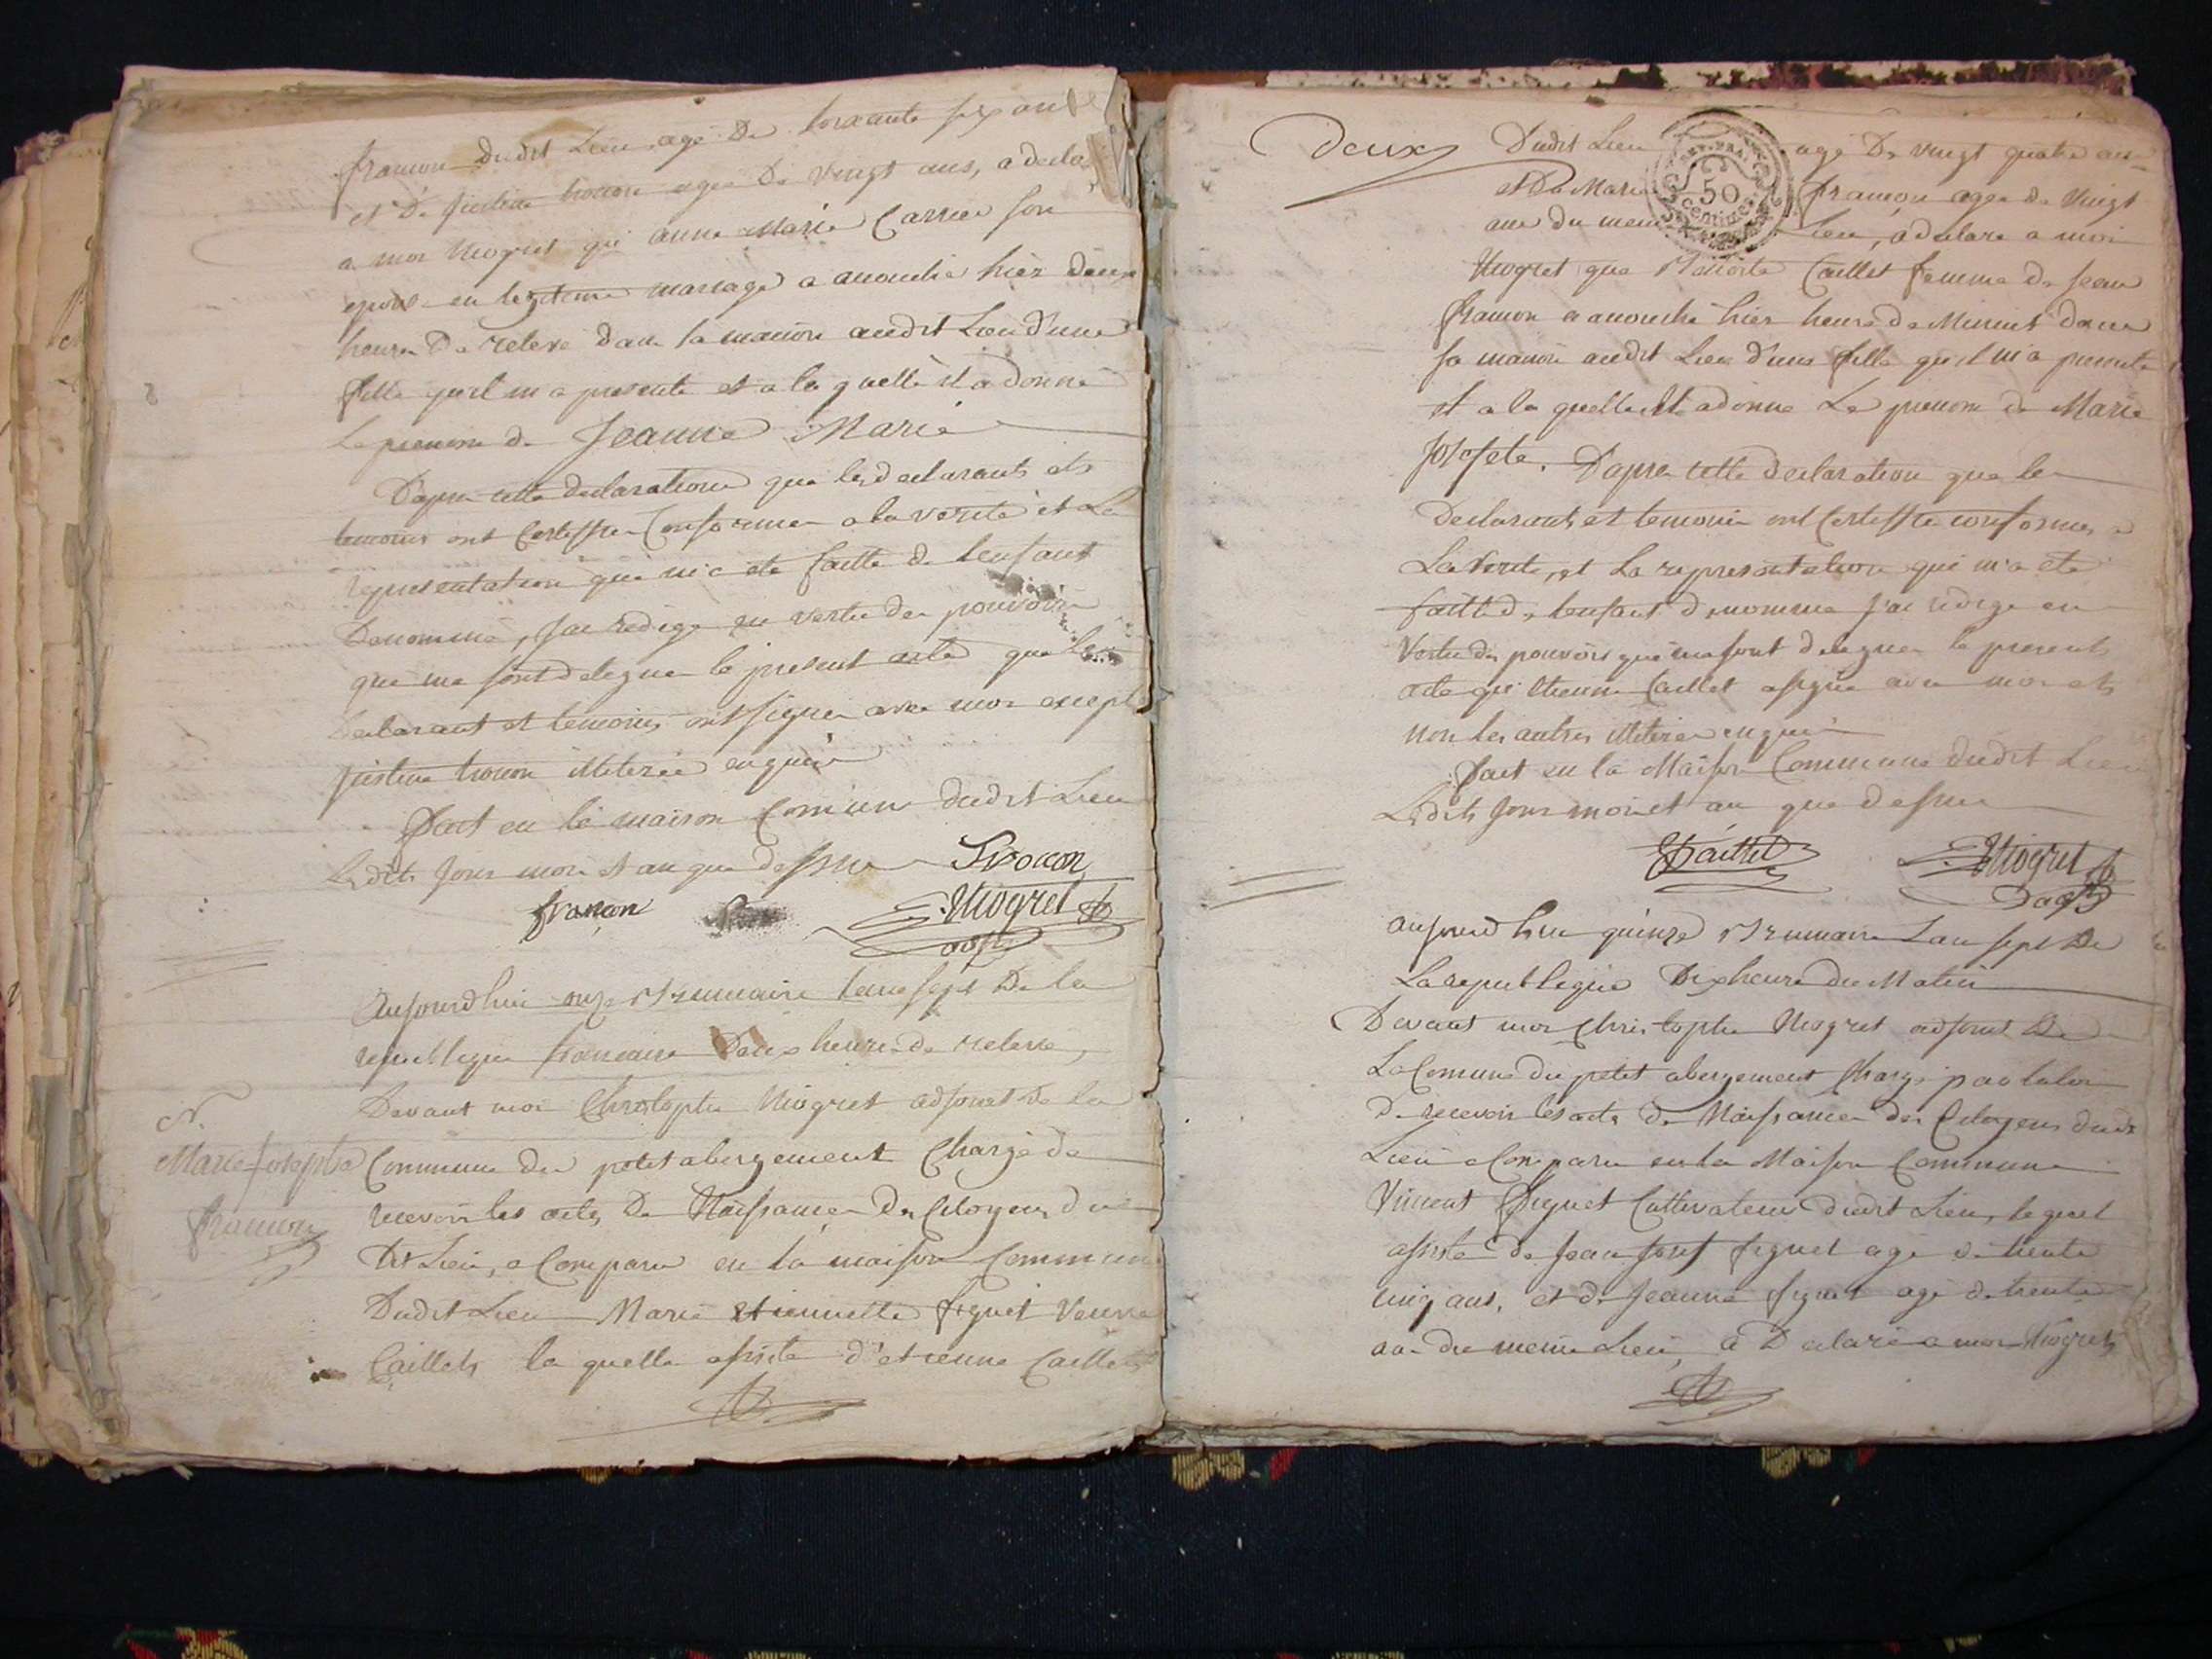 françon dudit Lieu agé de soixante six ans
et De Justine trocon agée De Vingt ans, a decla
a moi Niogret que anne Marie Carrier son
epouse en legitime mariage a accouchée hier deux
heures De relevé dans sa maison audit Lieu d'une
fille qu'il m'a presenté et a la quelle il a donné
Le prenom de Jeanne Marie
D'apres cette declaration que les declarants et
temoins ont Certiffiée Conforme a la verité et La
representation qui m'a eté faitte de lenfant
Denommé, J'ai redigé en vertu des pouvoirs
qui me sont delegués le present acte que les
declarant et temoins ont signer avec moi excepté
justine trocon illiterée enquise
Fait en la maison Comune dudit Lieu
Lesdits Jour mois et an que dessus Trocon
françon C. Niogret
adjt
Aujourdhui onze Brumaire lan sept De la
republique francaise Deux heures de relevée,
Devant moi Christophe Niogret adjoint De La
N.
Marie josephe
françon
Commune du petit abergement Chargé de
recevoir les actes De Naissance Des Citoyens du
Dit Lieu, a Comparu en la maison Commune
Dudit Lieu Marie Etiennette figuet Veuve
Caillets la quelle assisté d'etienne Caillet
Deux
Dudit Lieu agé De vingt quatre ans
et De Marie françon agée de Vingt
ans du meme Lieu, a declaré a moi
Niogret que Caillet femme de Jean
françon a accouchée hier heure de Minuit dans
sa maison audit Lieu d'une fille qu'il m'a presenté
et a la quelle Il a donné Le prenom de Marie
Josefete. D'apres cette declaration que les
Declarants et temoins ont Certiffié conforme a
La verité, et La representation qui m'a eté
faitte de lenfant denommé j'ai redigé en
Vertu des pouvoirs qui me sont delegués le present
acte que Etienne Caillet a signé avec moi et
non les autres illiterés enquis
fait en la Maison Commune dudit Lieu
Lesdits Jour mois et an que dessus
E Caillet C. Niogret
adjt
aujourdhui quinze Brumaire Lan sept De
La republique Dix heures du Matin
Devant moi Christophe Niogret adjoint De
La Comune du petit abergement Chargé par la loi
De recevoir les actes de Naissance des Citoyens dudit
Lieu a Comparu en la Maison Commune
Vincent figuet Cultivateur dudit Lieu, lequel
assisté de Jean Josef figuet agé de trente
cinq ans, et de Jeanne figuet agé de trente
ans du meme Lieu, a Declaré a moi Niogret